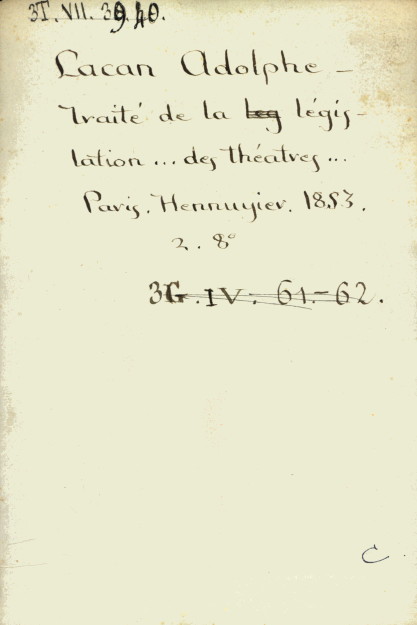 3T. VII. 39.40.
Lacan Adolphe –
Traité de la leg légis-
lation ... des théatres ...
Paris. Hennuyier. 1853.
2. 8°
3G. IV. 61.-62.
C.